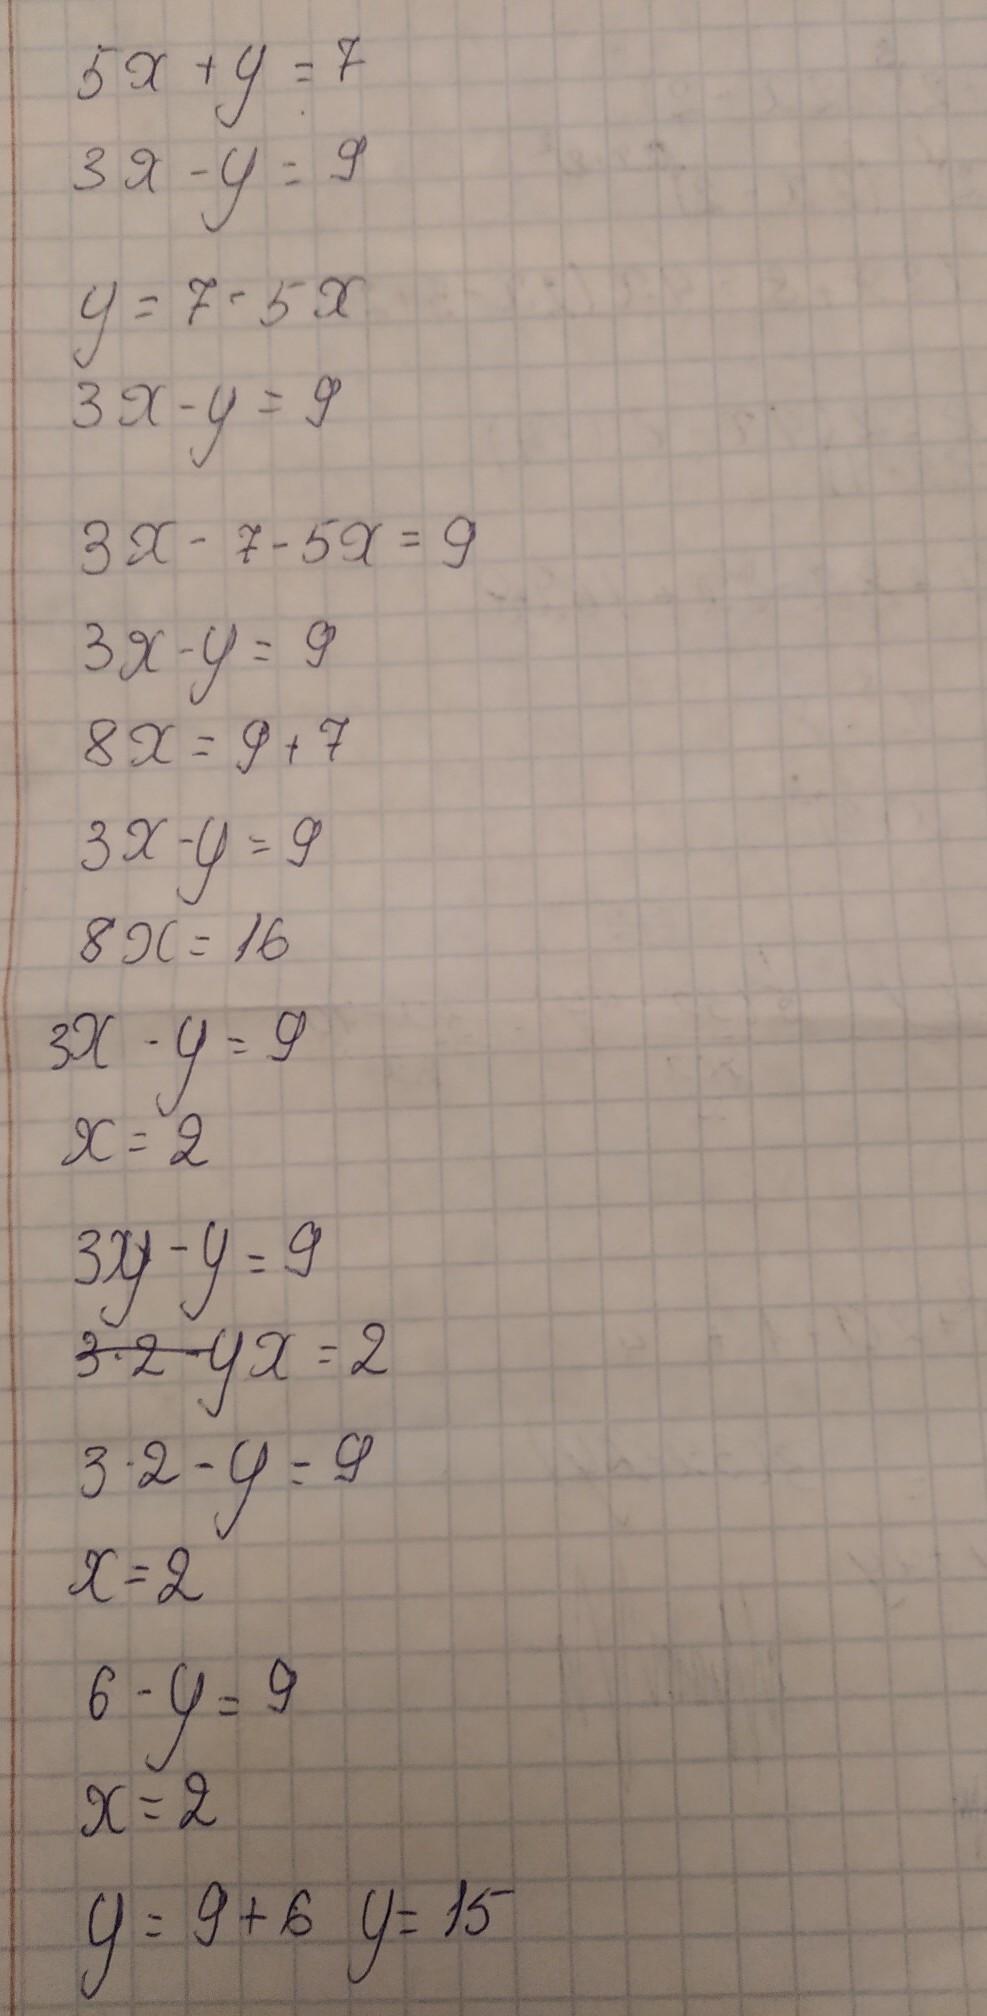 5x + y = 7
3x - y = 9
y = 7 - 5x
3x - y = 9
3x - 7 - 5x = 9
3x - y = 9
8x = 9 + 7
3x - y = 9
8x = 16
3x - y = 9
x = 2
3xy - y = 9
3·2 - y x = 2
3·2 - y = 9
x = 2
6 - y = 9
x = 2
y = 9 + 6 y = 15